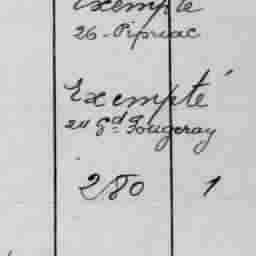 Exempté
26 - Pipriac
Exempté
24 Gd Fougeray
280 1